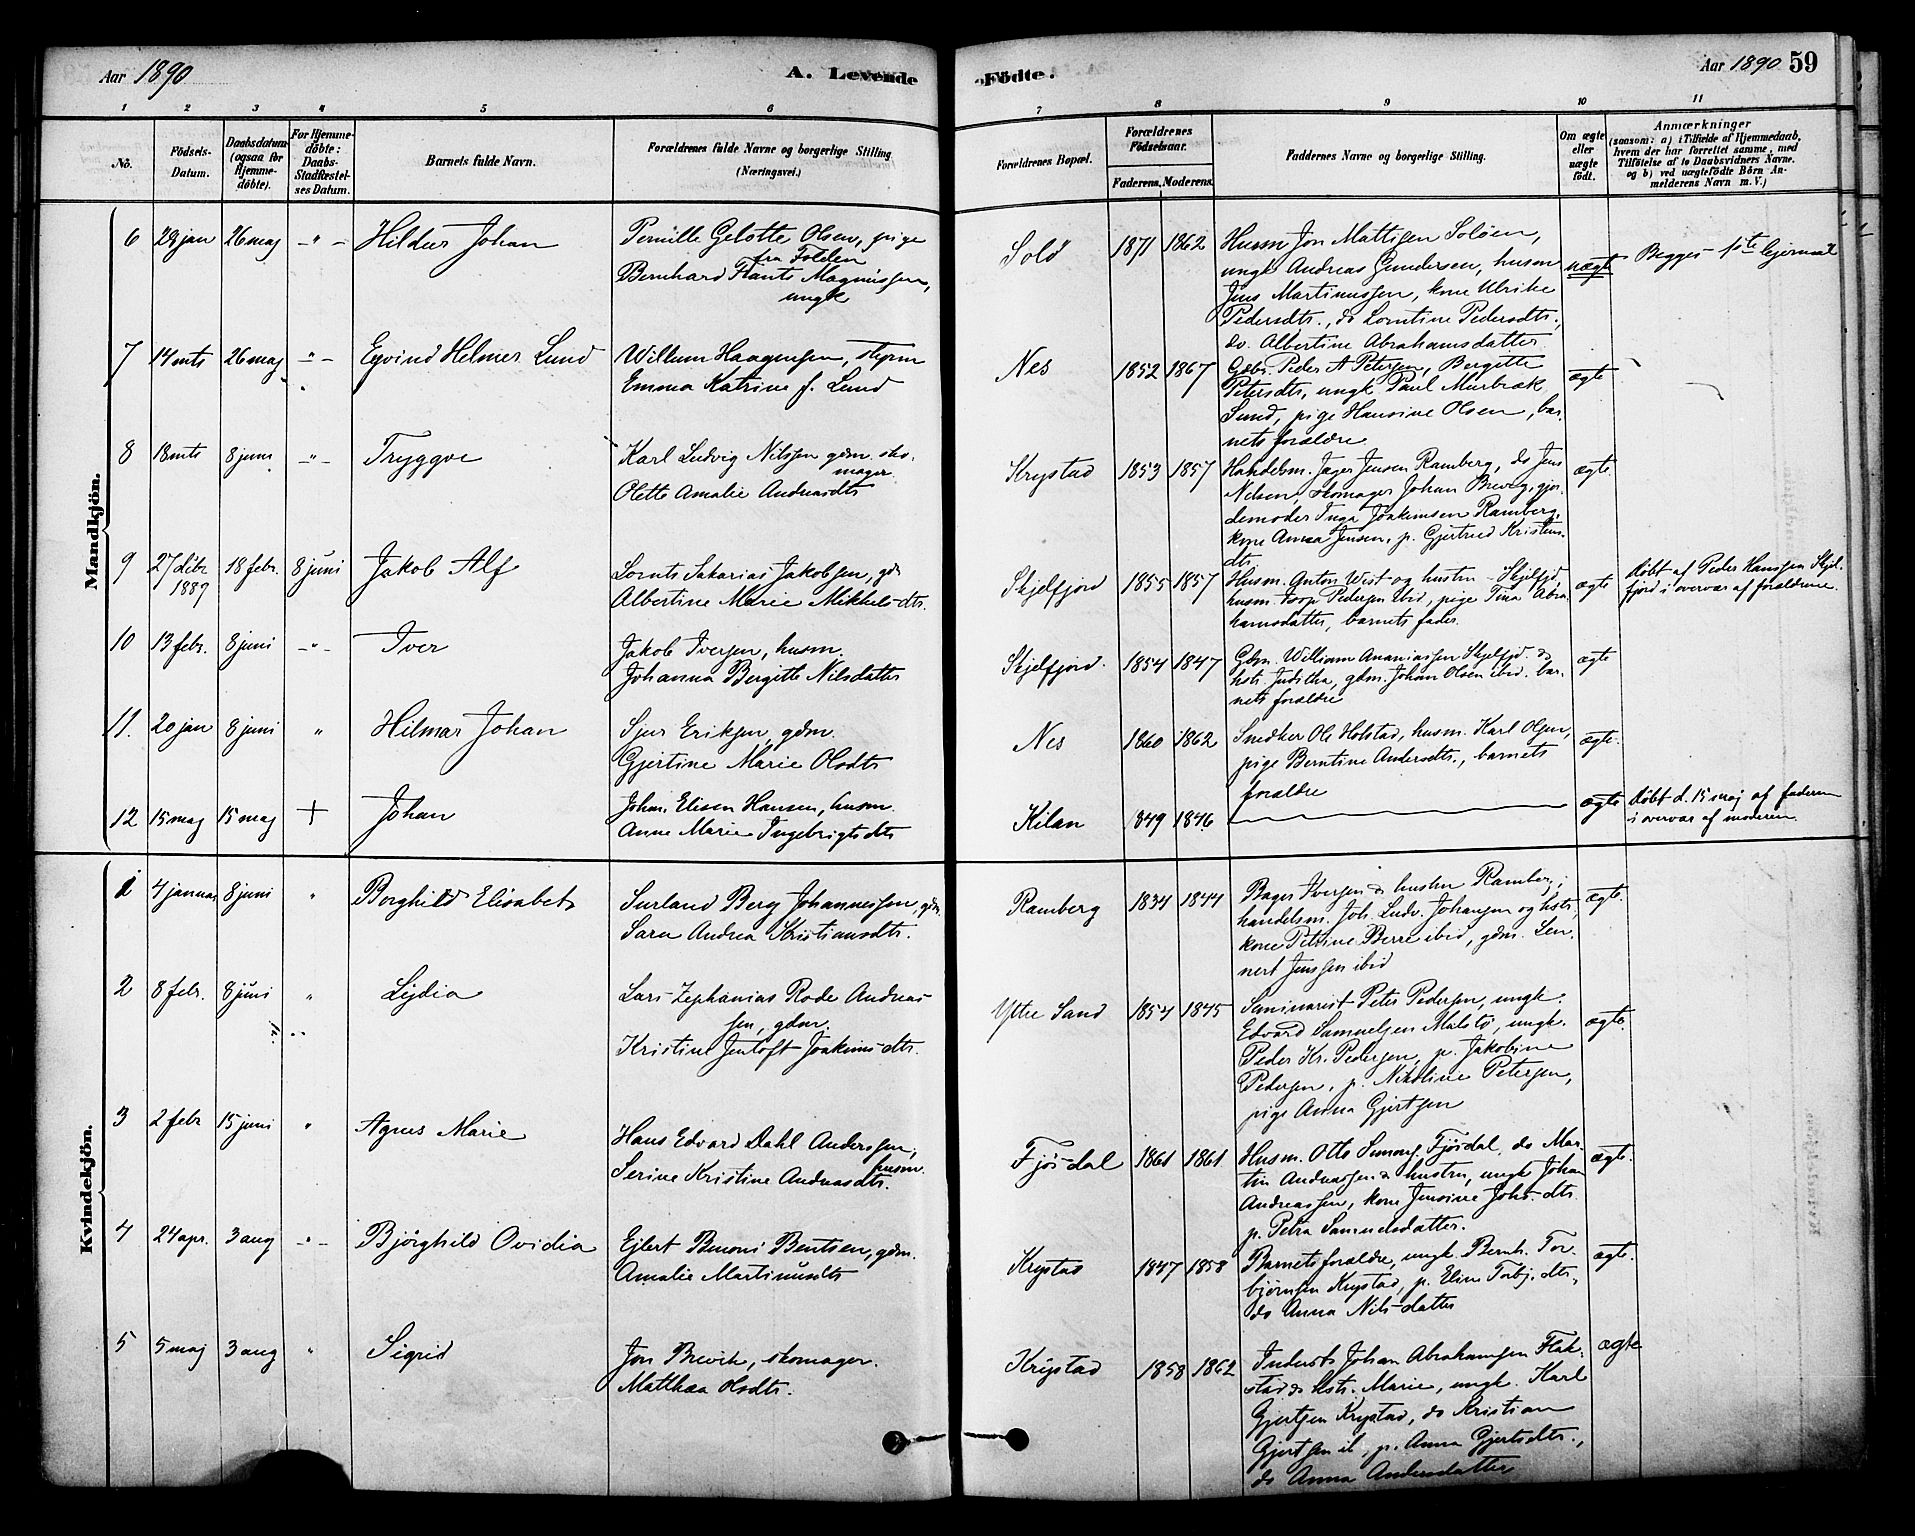 Aar 1890
A. Levende
1 2 3 4 5 6
No.
Födsels-
Datum.
Daabsdatum
(ogsaa for
Hjemme-
döbte).
For Hjemme-
döbte:
Daabs-
Stadfæstel-
ses Datum.
Barnets fulde Navn.
Forældrenes fulde Navne og borgerlige Stilling
(Næringsvei.)
Mandkjön.
6 28 jan 26 maj -"- Hildur Johan
Pernille Gelotte Olsen, pige
fra Folden
Bernhard Hants Magnussen,
ungk
7 14 mts 26 maj -"- Eyvind Helmer Lund
Willum Haagensen, styrm
Emma Katrine f. Lund
8 18 mts 8 juni -"- Tryggve
Karl Ludvig Nilssen gdm. sko-
mager
Olette Amalie Andreasdtr
9 27 debr 1889 18 febr. 8 juni Jakob Alf
Lornts Sakarias Jakobsen, gdm
Albertine Marie Mikkels-dtr.
10 13 febr. 8 juni -"- Iver
Jakob Iversen, husm.
Johanna Bergitte Nilsdatter
11. 20 jan 8 juni " Hilmar Johan
Sjur Eriksen, gdm.
Gjertine Marie Olsdtr
12 15 maj 15 maj + Johan
Johan Elisen Hansen, husm.
Anne Marie Ingebrigtsdtr
Kvindekjön.
1 4 januar 8 juni " Borghild Elisabet
Surland Berg Johannessen, gdm.
Sara Andrea Kristiansdtr.
2 8 febr. 8 juni " Lydia
Lars Zephanias Rode Andreas-
sen, gdm.
Kristine Jentoft Joakims-dtr.
3 2 febr 15 juni " Agnes Marie
Hans Edvard Dahl Anderssen,
husm.
Serine Kristine Andreasdtr.
4 24 apr. 3 aug -"- Bjørghild Ovidia
Ejlert Benoni Bentsen, gdm.
Amalie Martinusdtr
5 5 maj 3 aug " Sigrid
Jon Brevik, skomager.
Matthea Olsdtr.
Födte.
Aar 1890 59
7 8 9 10 11
Forældrenes Bopæl.
Forældrenes
Födselsaar.
Faderens. Moderens.
Faddernes Navne og borgerlige Stilling.
Om ægte
eller
uægte
födt.
Anmærkninger
(saasom: a) i Tilfælde af Hjemmedaab,
hvem der har forrettet samme, med
Tilföielse af to Daabsvidners Navne.
og b) ved uægtefödte Börn An-
melderens Navn m. V.)
Solø 1871 1862
Husm Jon Mattisen Soløen,
ungk Andreas Gundersen, husm
Jens Martinussen, kone Ulrike
Pedersdtr., do Lorntine Pedersdtr.,
do. Albertine Abrahamsdatter
uægte
Begges 1ste lejermaal
Nes 1852 1867
Gdbr. Peder A Petersen, Bergitte
Petersdtr, ungk Paul Murbræk
Sund, pige Hansine Olsen, bar-
nets forældre
ægte
Krystad 1853 1857
Handelsm. Jager Jensen Ramberg, do Jens
Nelsen, skomager Johan Brevig, gjor-
demoder Inga Joakimsen Ramberg,
kone Anna Jensen, p. Gjertrud Kristens-
dtr.
ægte
Skjelfjord 1855 1857
Husm. Anton West og hustru Skjelfjd,
husm. Joop Pedersen ibid, pige Tina Abra-
hamsdatter, barnets fader.
ægte
døbt af Peder Hanssen Skjel-
fjord i overvær af forældrene.
Skjelfjord. 1854 1847
Gdm. William Ananiassen Skjelfjd. &
hstr. Juditha, gdm. Johan Olsen ibid. bar-
nets forældre
ægte
Nes 1860 1862
Snedker Ole Holstad, husm. Karl Olsen,
pige Berntine Andersdtr., barnets
forældre
ægte.
Kilan 1849 1846
ægte
døbt d. 15 maj af faderen
i overvær af moderen.
Ramberg 1834 1844
Bager Iversen & hustru Ramberg,
handelsm. Joh. Ludv. Johansen og hstr,
kone Petrine Berre ibid, gdm. Len-
nert Jenssen ibid
ægte.
Ytre Sand 1854 1845
Seminarist Peter Pedersen, ungk.
Edvard Samuelsen Malstø, ungk.
Peder Kr. Pedersen, p. Jakobine
Pedersen, p. Nikoline Petersen,
pige Anna Gjertsen
ægte.
Fjøsdal 1861 1861
Husm. Otto Simons. Fjøsdal, do Mar-
tin Andreassen & hustru, ungk Johan
Andreassen, kone Jensine Johs-dtr.
p. Petra Samuelsdatter.
ægte.
Krystad 1847 1858
Barnets forældre, ungk. Bernh. Tor-
bjørnsen Krystad, p. Elise Torbj. dtr,
do Anna Nils-datter
ægte.
Krystad 1858 1862
Inderst Johan Abrahamsen Flak-
stad & hstr. Marie, ungk. Karl
Gjertsen Krystad, do Kristian
Gjertsen ib., p. Anna Gjertsdtr.,
do Anna Andersdatter
ægte